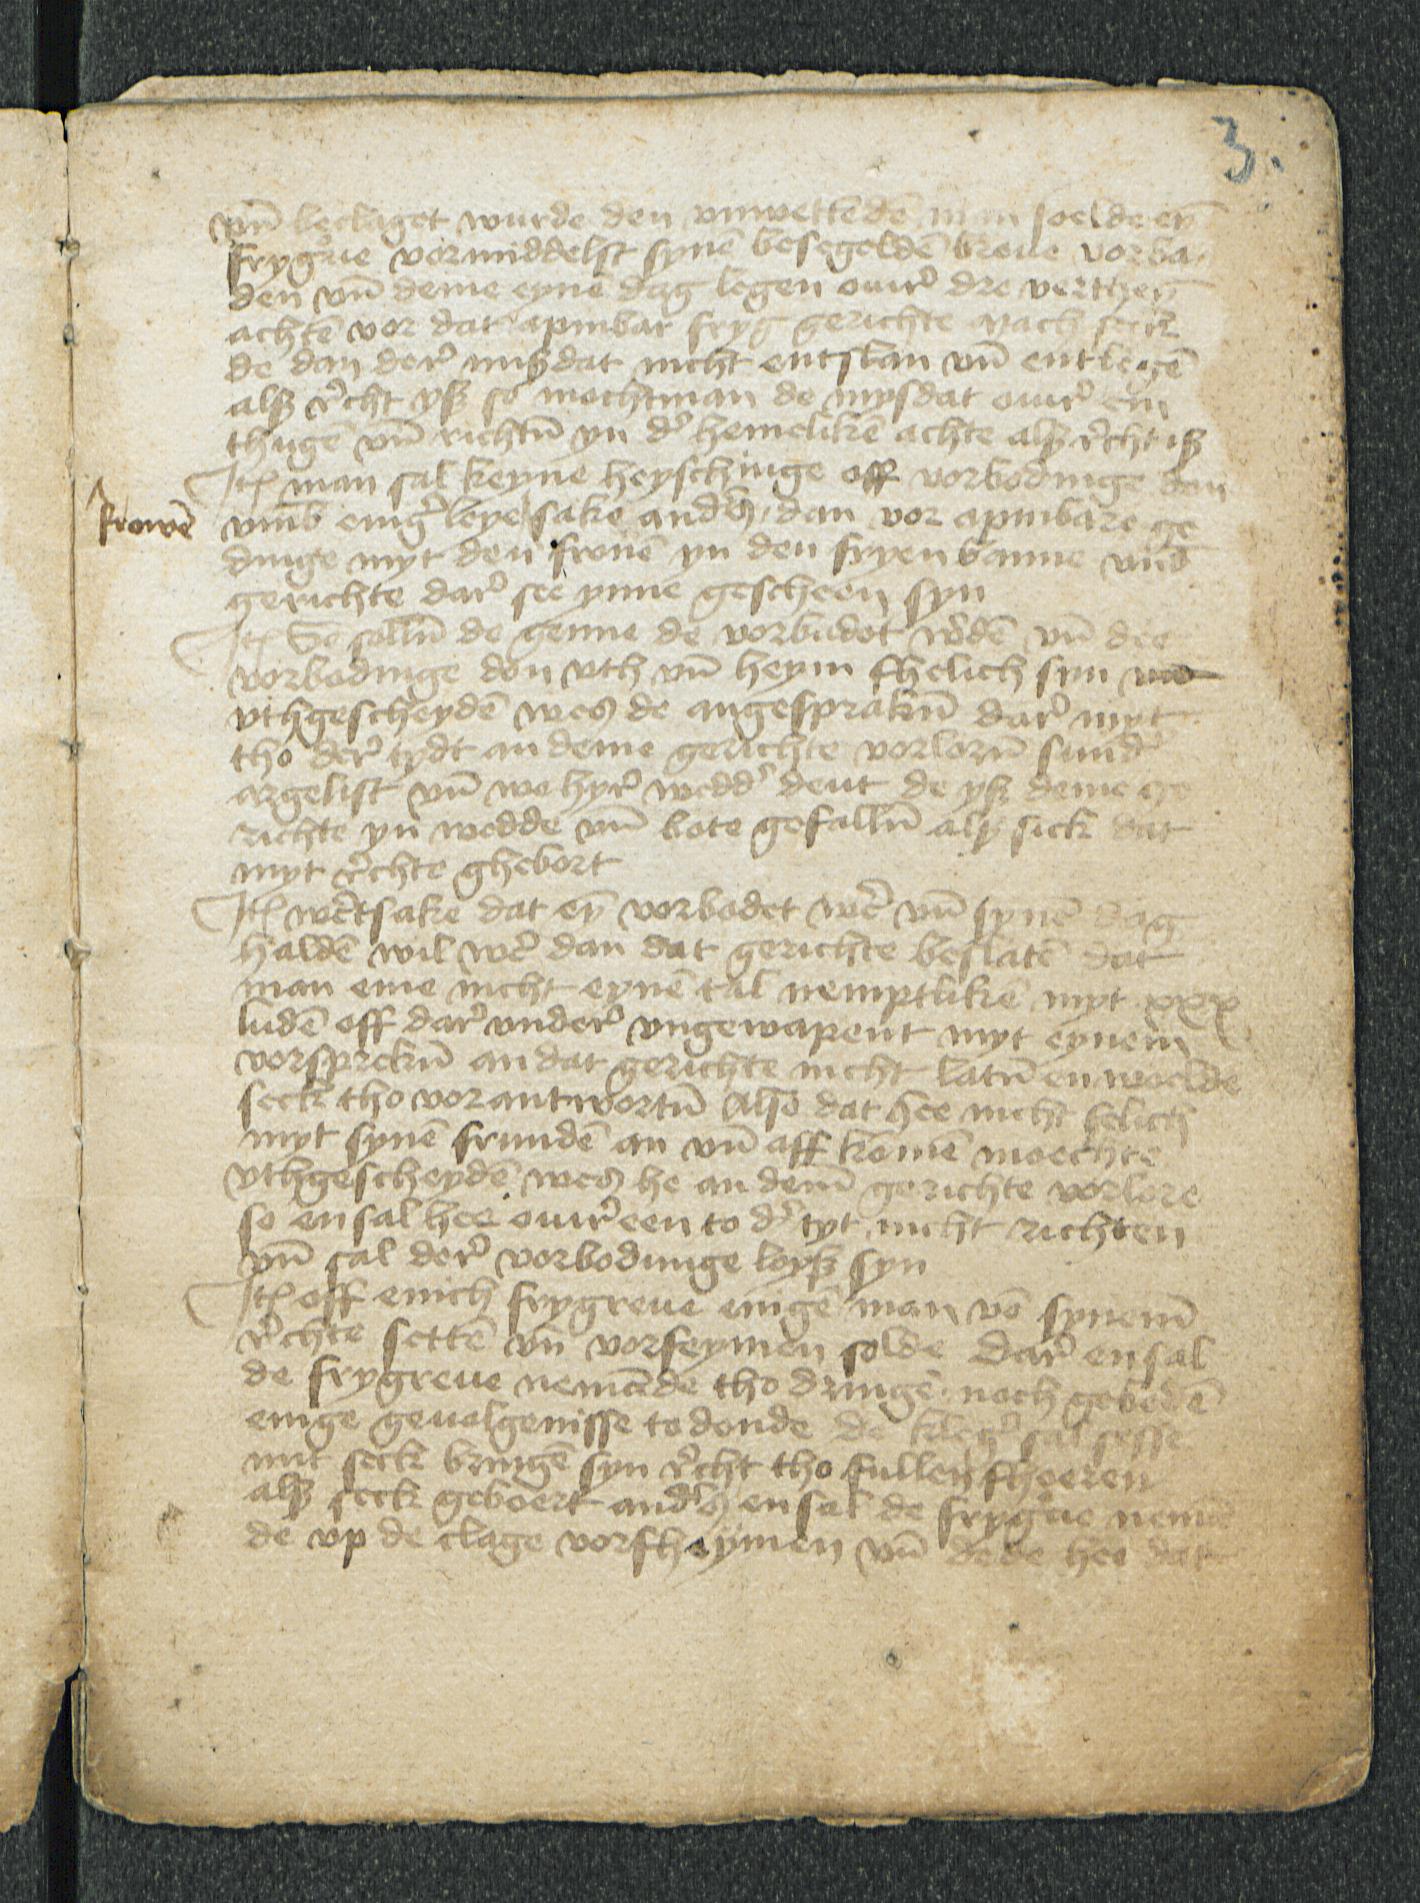 3.
vn̄ beclaget wurde den vnwettēdē man soelde eȳ
frygrue vormiddelst synē besegeldē breue vorba
den vn̄ deme eynē dag legen ouer dre vertzeȳ
achtē vor dat apinbar fryg gerichte Mach seck
de dan der mißdat nicht entslan vn̄ entlegē
alß recht yß so mochtman de mysdat ouer em
thugē vn̄ richtn̄ yn der hemelikē achte alß recht iß
Itē man sal keyne heyschinge off vorbodinge don
vmb enigerleye sake anders dan vor apinbare ge
frowē
dinge myt den fronē yn den fryen banne vnd
gerichte dar see ynne gescheen syn
Itē So solln̄ de genne de vorbodet werdē vn̄ dee
vorbodinge don vth vn̄ heym fhelich syn
vthgescheydē wes de angesprakn̄ dar myt
tho der tydt an deme gerichte vorlorn̄ sunder
argelist vn̄ we hyr wedder deut de yß deme ge
richte yn wedde vn̄ bote gefalln̄ alß sick dat
myt rechte ghebort
Itē wertsake dat eȳ vorbodet wer vn̄ synē dag
haldē wil wer dan dat gerichte beslatē dat
man eme nicht eynē tal nemptlikē myt xxx
ludē off dar vnder vngewapent myt eynem
vorsprekn̄ an dat gerichte nicht latn̄ en woelde
seck tho vorantwortn̄ Also dat hee nicht felich
myt synē frundē an vn̄ aff komē moechte
vthgescheydē wes he an dem̄ gerichte vorlore
so ensal hee ouer een to der tyt nicht richten
vn̄ sal der vorbodinge loyß syn
Itē off enich frygreue enigē man vō synem̄
rechte settē vn̄ vorseymen solde Dar ensal
de frygreue nemāde tho dringē noch gebedē
enige geuolgenisse to donde de kleger sal sesse
mit seck bringē syn recht tho fullen fhoeren
alß seck geboert anders ensal de frygrue nemā
de vp de clage vorfheymen vn̄ dede hee dat